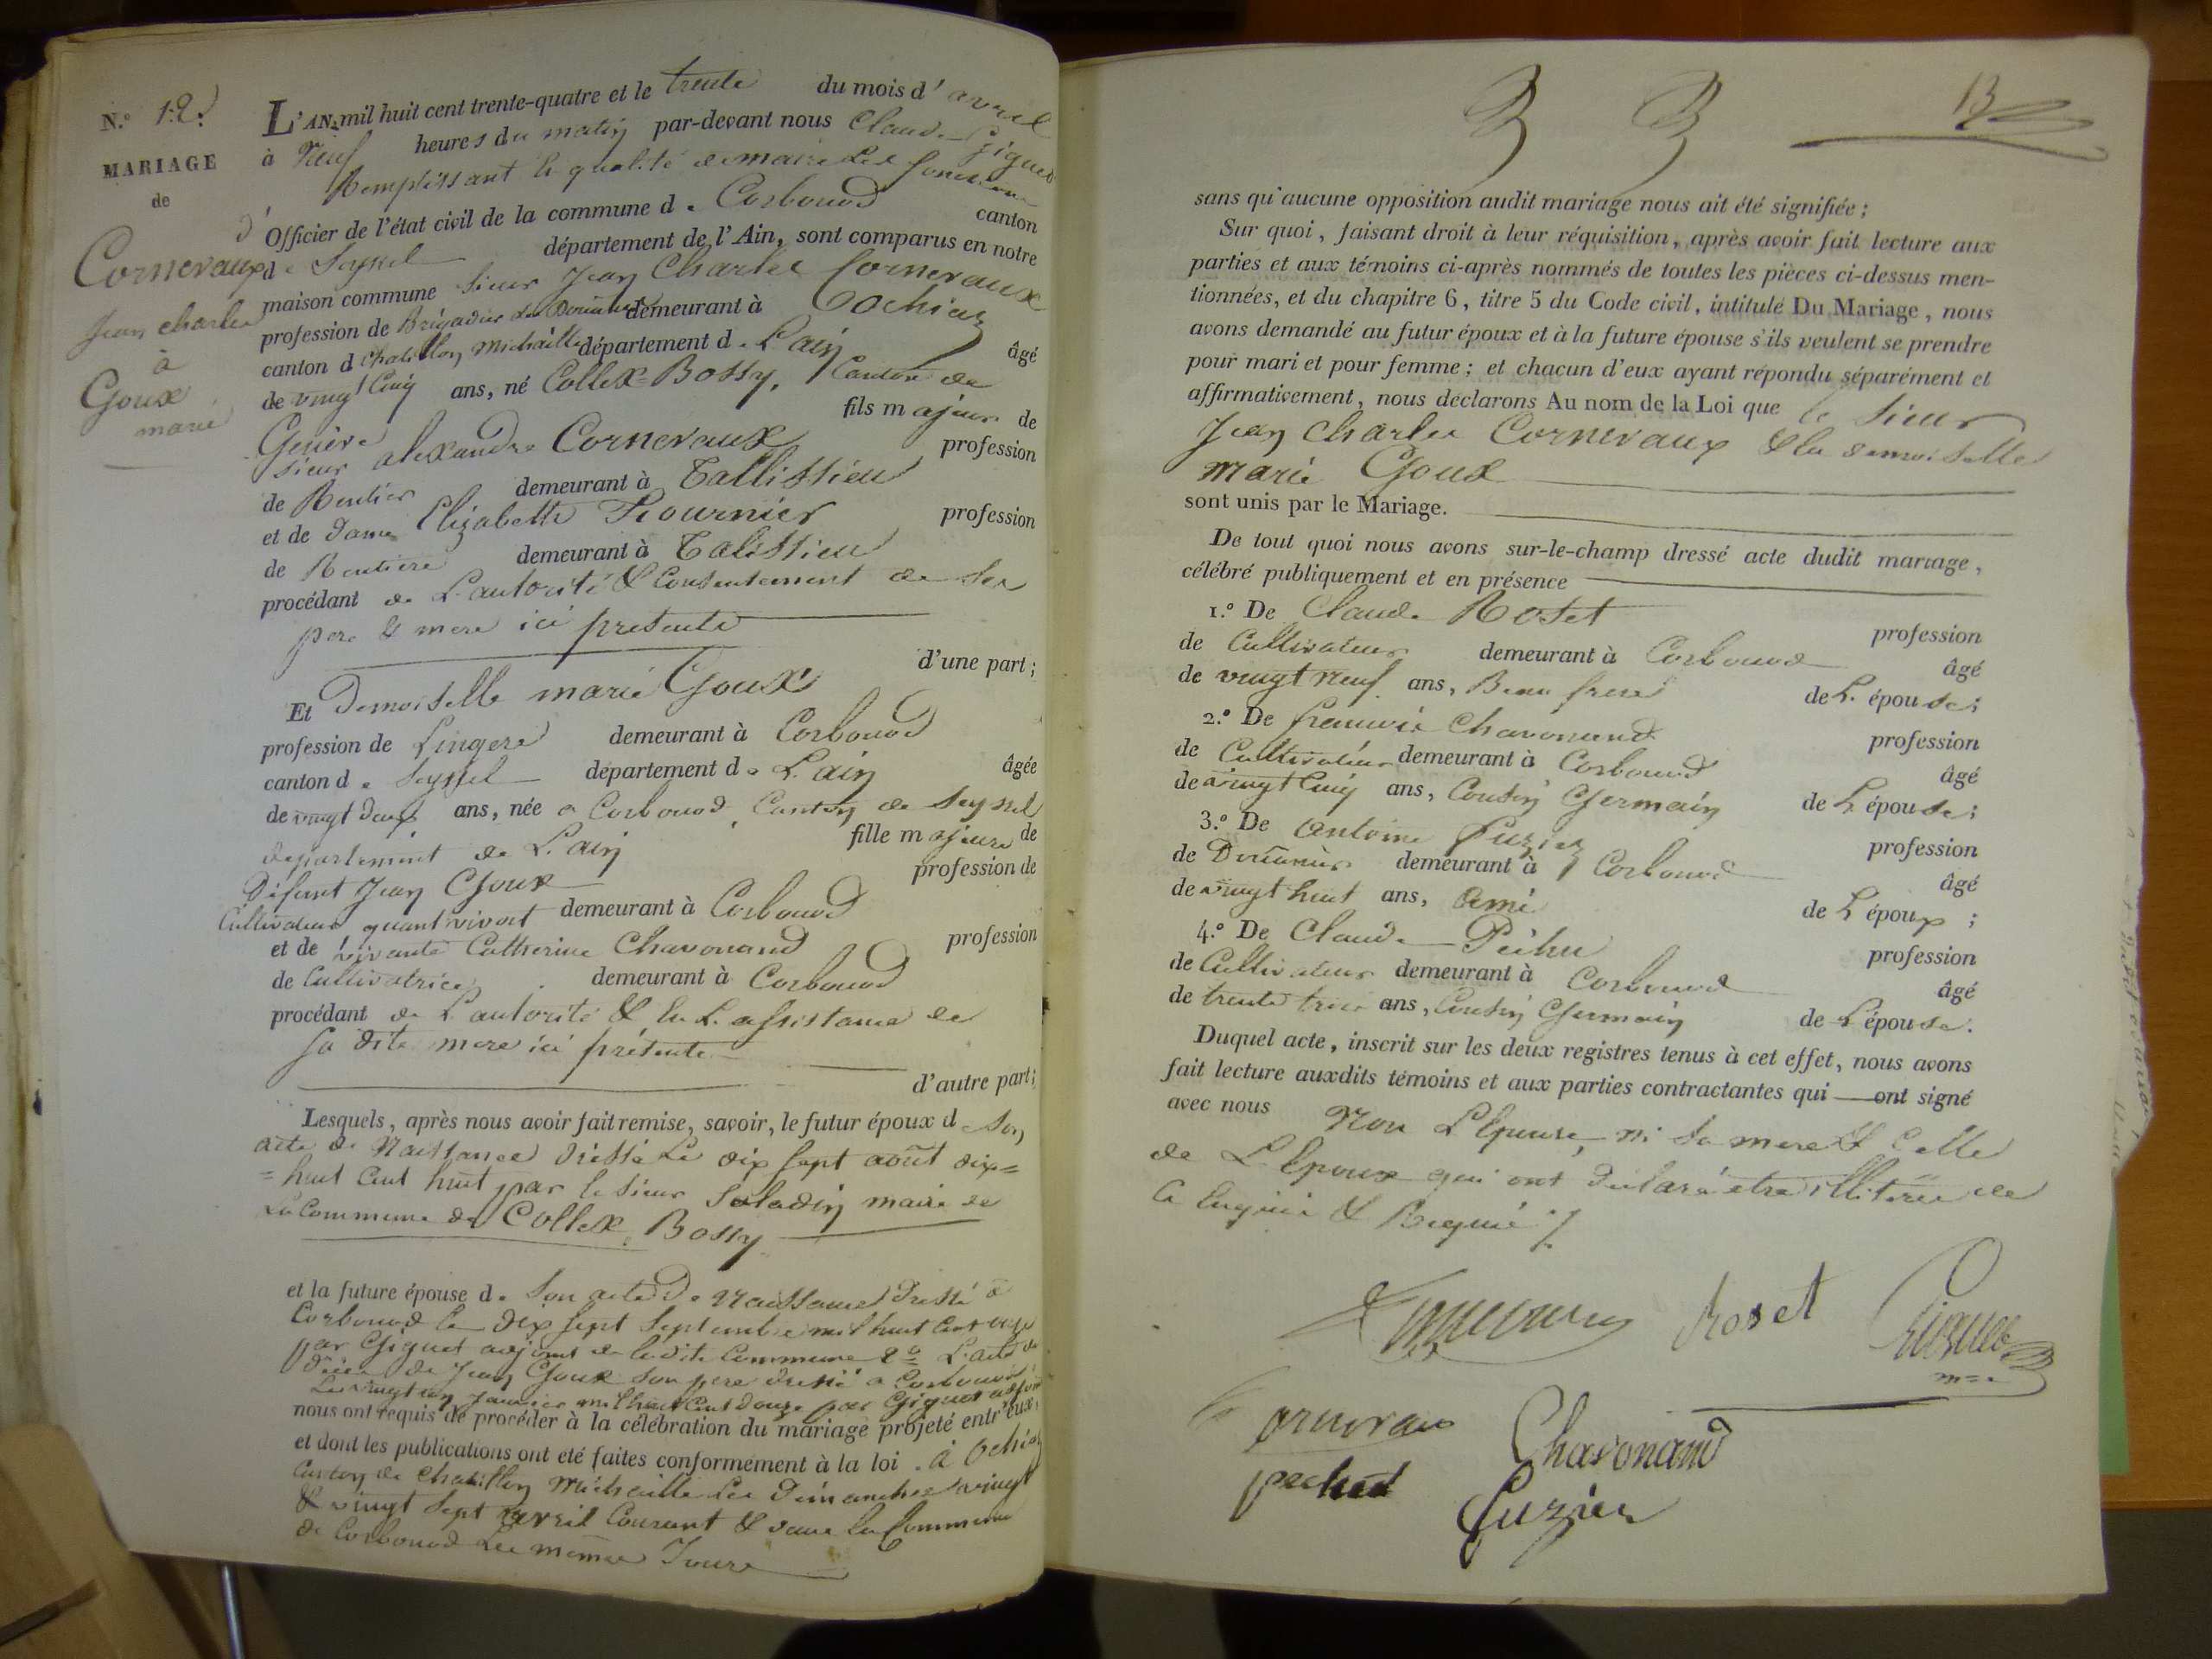 N.º 12.
MARIAGE
de
Cornevaux
Jean charles
à
Goux
marie
L'AN mil huit cent trente-quatre et le trente du mois d'avril
à Neuf heures du matin par-devant nous Claude Giguet
Remplissant la qualité de maire les fonctions
d'Officier de l'état civil de la commune de Corbonod canton
de Seyssel département de l'Ain, sont comparus en notre
maison commune sieur Jean Charles Cornevaux
profession de Brigadier des Douanes demeurant à Ochiaz
canton d Chatillon Michaille département de L'ain âgé
de vingt Cinq ans, né Collex-Bossy, Canton de
Genève fils majeur de
sieur alexandre Cornevaux profession
de Rentier demeurant à Tallissieu
et de Dame Elizabeth Fournier profession
de Rentiere demeurant à Talissieu
procédant de L'autorité & Consentement de ses
pere & mere ici présents
d'une part;
Et Demoiselle marie Goux
profession de Lingere demeurant à Corbonod
canton de Seyssel département de L'ain âgée
de vingt deux ans, née a Corbonod Canton de Seyssel
département de L'ain fille majeure de
Défunt Jean Goux profession de
Cultivateur quant vivoit demeurant à Corbonod
et de vivante Catherine Chavonand profession
de Cultivatrice demeurant à Corbonod
procédant de L'autorité & en L'assistance de
sa dite mere ici présente
d'autre part;
Lesquels, après nous avoir fait remise, savoir, le futur époux de son
acte de Naissance dressé le dix sept août dix=
=huit cent huit par le sieur Saladin maire de
La Commune de Collex Bossy
et la future épouse de son acte de Naissance dressé à
Corbonod le dix sept septembre mil huit cent onze
par Giguet adjoint de la dite Commune 2º L'acte de
décès de Jean Goux son pere dressé a Corbonod
Le vingt un janvier mil huit cent douze par Giguet adjoint
nous ont requis de procéder à la célébration du mariage projeté entr'eux,
et dont les publications ont été faites conformément à la loi. à Ochiaz
Canton de Chatillon Michaille les Dimanches vingt
& vingt sept avril Courant & dans la Commune
de Corbonod Les mêmes Jours
13
sans qu'aucune opposition audit mariage nous ait été signifiée;
Sur quoi, faisant droit à leur réquisition, après avoir fait lecture aux
parties et aux témoins ci-après nommés de toutes les pièces ci-dessus men-
tionnées, et du chapitre 6, titre 5 du Code civil, intitulé Du Mariage, nous
avons demandé au futur époux et à la future épouse s'ils veulent se prendre
pour mari et pour femme; et chacun d'eux ayant répondu séparément et
affirmativement, nous déclarons Au nom de la Loi que le sieur
Jean Charles Cornevaux & la demoiselle
marie Goux
sont unis par le Mariage.
De tout quoi nous avons sur-le-champ dressé acte dudit mariage,
célébré publiquement et en présence
1.º De Claude Roset profession
de Cultivateur demeurant à Corbonod âgé
de vingt neuf ans, Beau frere de L'épouse;
2.º De francois Chavonand profession
de Cultivateur demeurant à Corbonod âgé
de vingt Cinq ans, Cousin Germain de L'épouse;
3.º De Antoine Fuzier profession
de Douanier demeurant à Corbonod âgé
de vingt huit ans, ami de L'époux;
4.º De Claude Péchu profession
de Cultivateur demeurant à Corbonod âgé
de trente trois ans, Cousin Germain de L'épouse.
Duquel acte, inscrit sur les deux registres tenus à cet effet, nous avons
fait lecture auxdits témoins et aux parties contractantes qui ont signé
avec nous Non L'Epouse, ni sa mere & Celle
de L'Epoux qui ont déclaré être illitéré de
Ce Enquis & Requis ./.
Roset
Giguet
Cornevaux
Chavonand
pechud
Fuzier